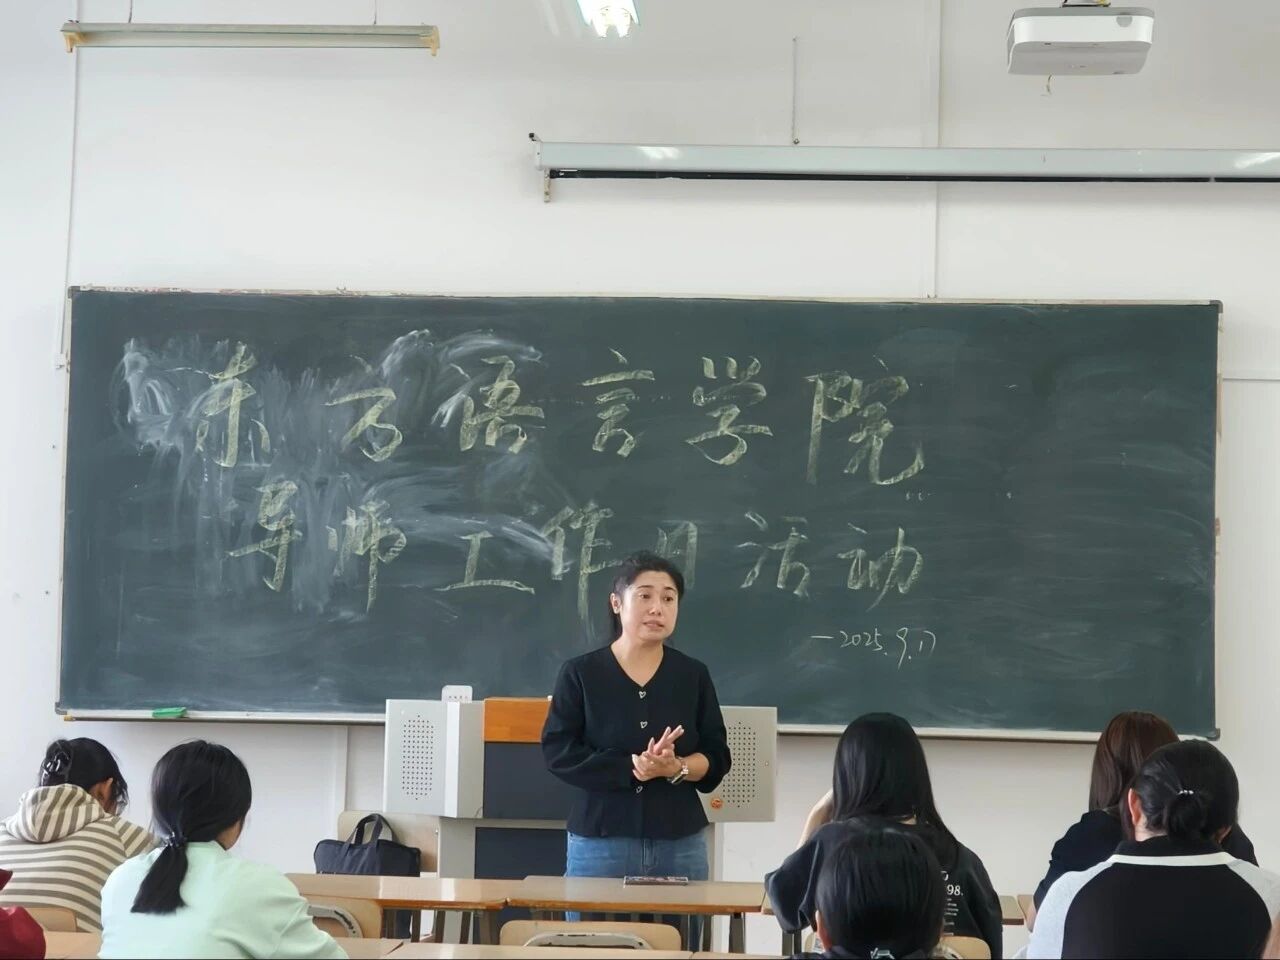 东方语言学院
导师工作月活动
—2025.9.17
98.